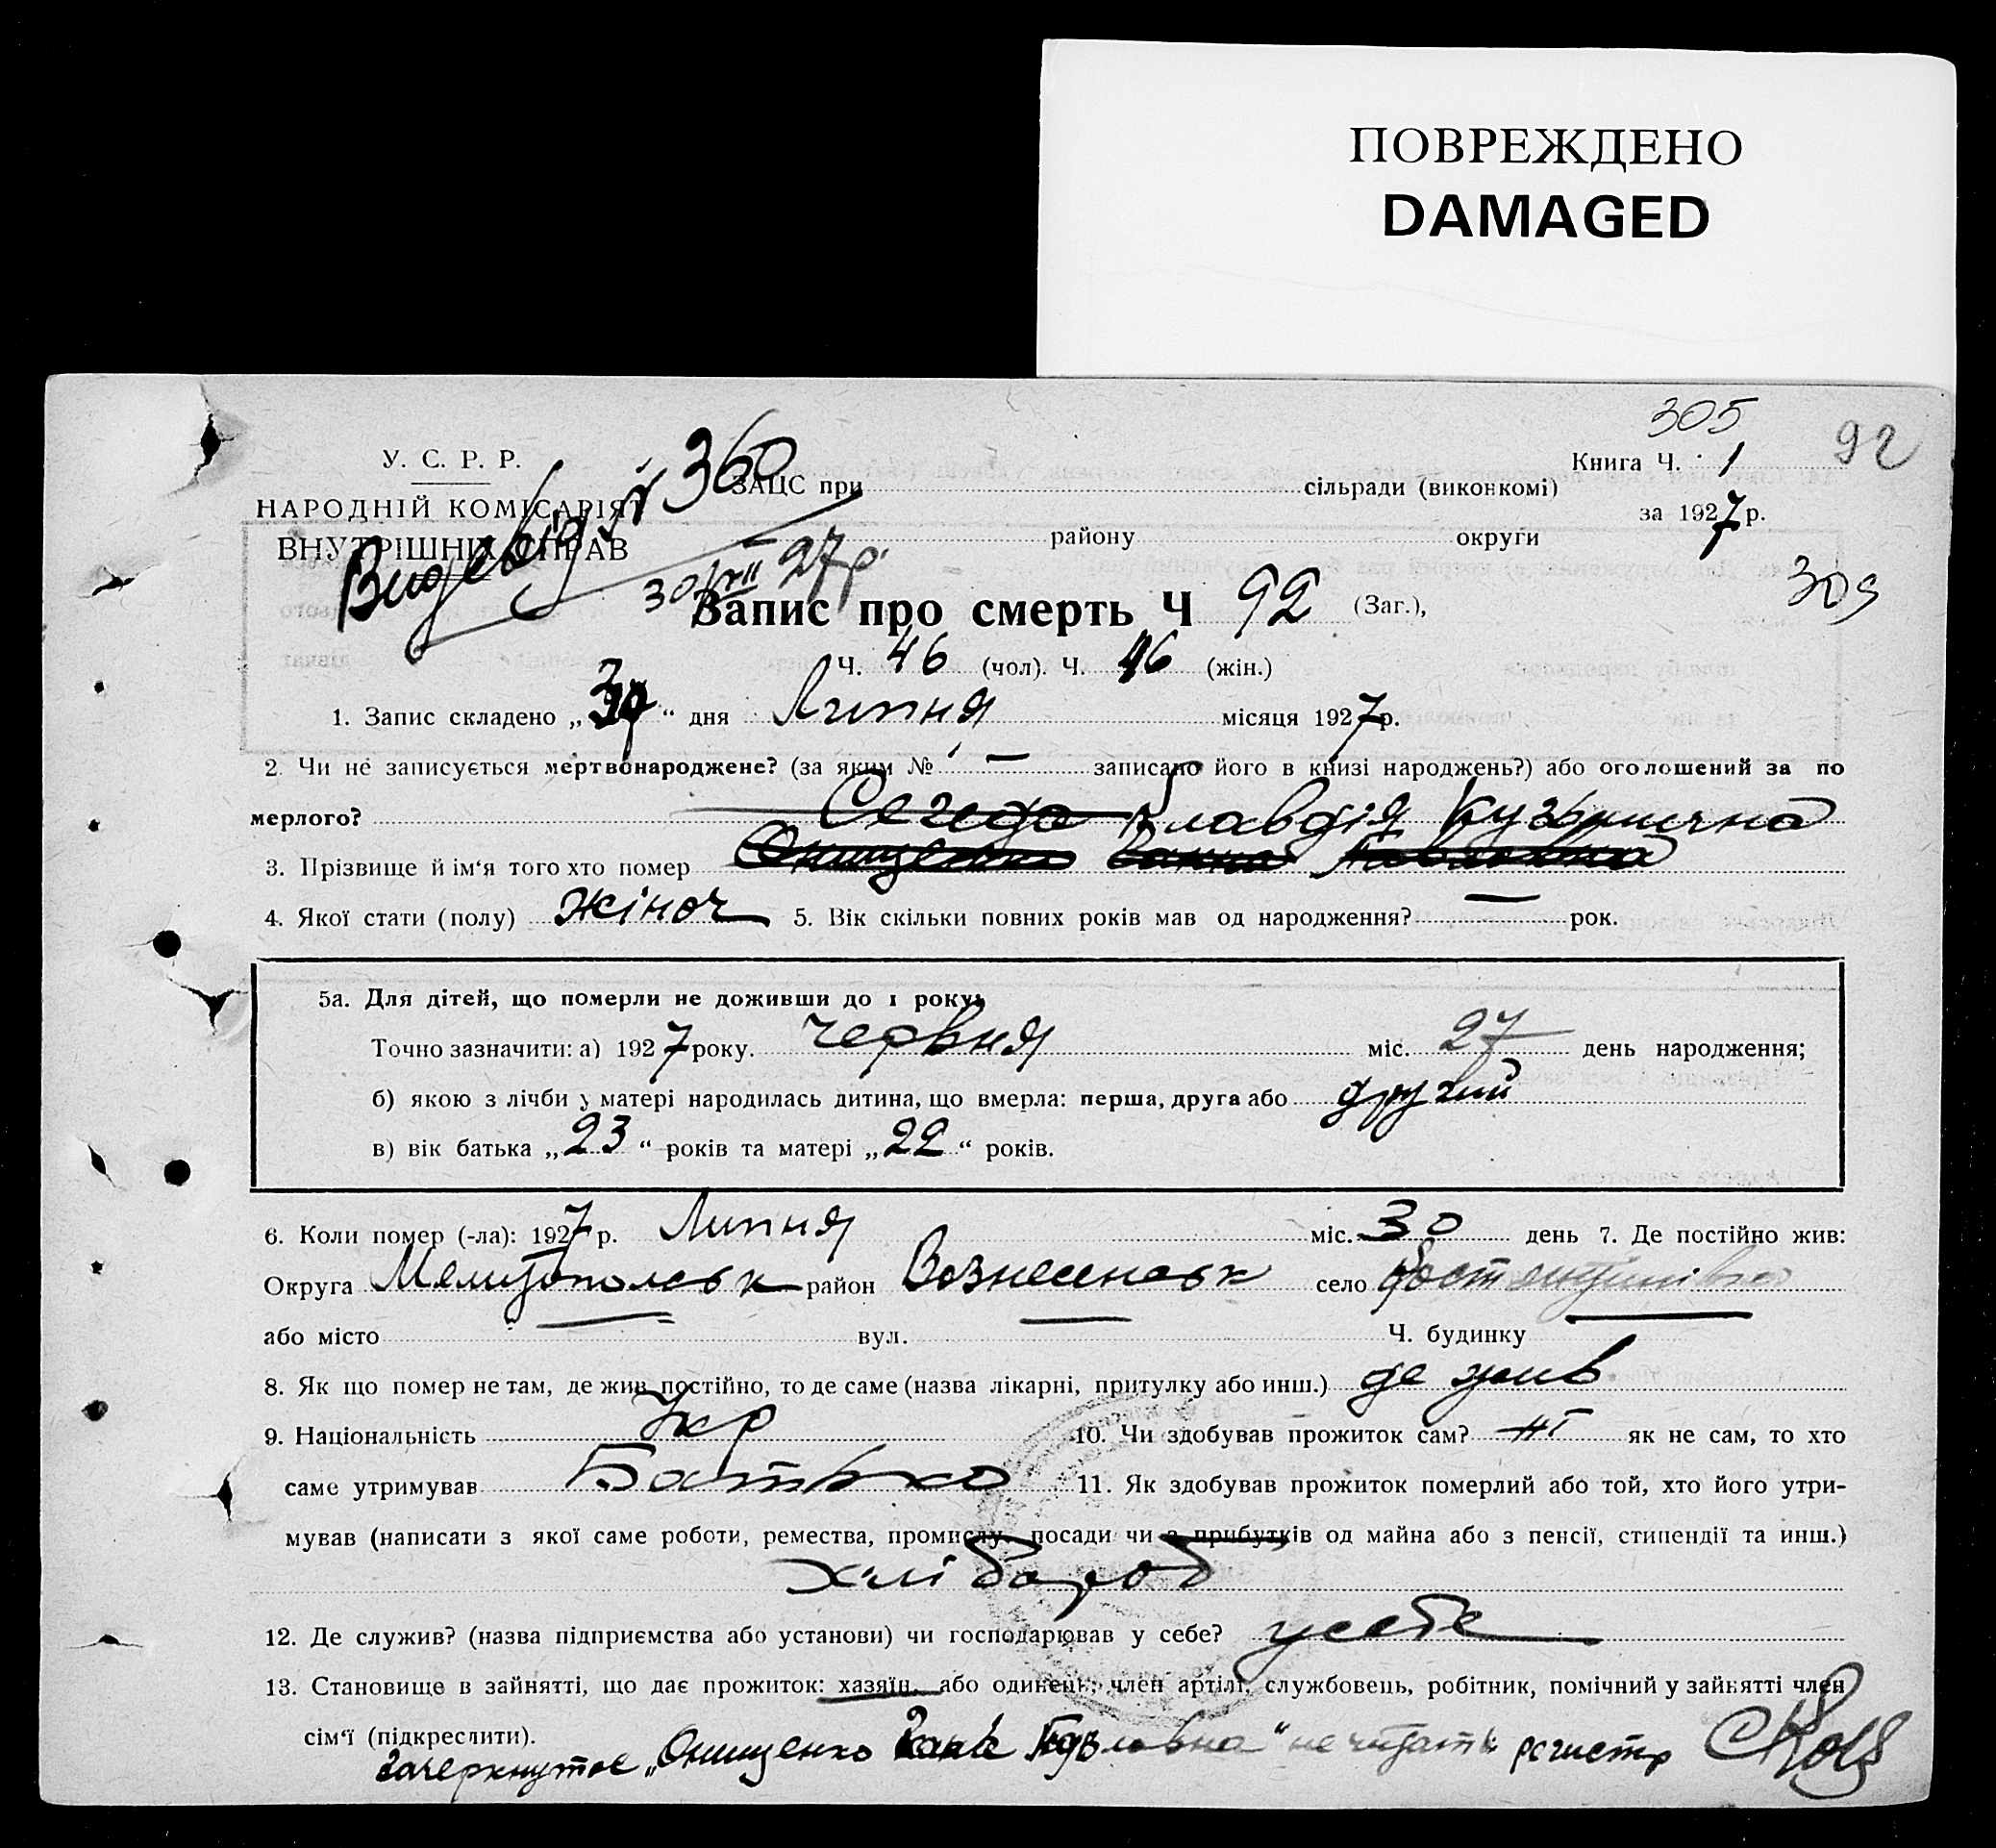 ПОВРЕЖДЕНО
DAMAGED
305
92
У. С. Р. Р.
НАРОДНІЙ КОМІСАРІЯТ
ВНУТРІШНІХ СПРАВ
№ 360
30/VII 27р.
ЗАЦС при сільради (виконкомі)
Книга Ч. 1
району округи
за 1927 р.
309
Запис про смерть Ч 92 (Заг.),
Ч. 46 (чол). Ч. 46 (жін.)
1. Запис складено „ “ дня Липня місяця 1927 р.
2. Чи не записується мертвонароджене? (за яким № — записано його в книзі народжень?) або оголошений за по
мерлого?
Клавдія Кузьмична
3. Прізвище й ім‘я того хто помер Онищенко Ганна Павловна
4. Якої стати (полу) жіноч 5. Вік скільки повних років мав од народження? — рок.
5а. Для дітей, що померли не доживши до 1 року:
Точно зазначити: а) 1927 року. червня міс. 27 день народження;
б) якою з лічби у матері народилась дитина, що вмерла: перша, друга або другий
в) вік батька „23“ років та матері „22“ років.
6. Коли помер (-ла): 1927 р. Липня міс. 30 день 7. Де постійно жив:
Округа Мелітопольськ район Вознесенськ село
або місто вул. Ч. будинку
8. Як що помер не там, де жив постійно, то де саме (назва лікарні, притулку або инш.) де жив
9. Національність Укр 10. Чи здобував прожиток сам? ні як не сам, то хто
саме утримував Батько 11. Як здобував прожиток померлий або той, хто його утри-
мував (написати з якої саме роботи, ремества, промислу, посади чи з прибутків од майна або з пенсії, стипендії та инш.)
хлібороб
12. Де служив? (назва підприємства або установи) чи господарював у себе? у себе
13. Становище в зайнятті, що дає прожиток: хазяїн, або одинець, член артілі, службовець, робітник, помічний у зайнятті член
сім‘ї (підкреслити).
Зачеркнутое „Онищенко Ганна Павловна“ не читать регистр